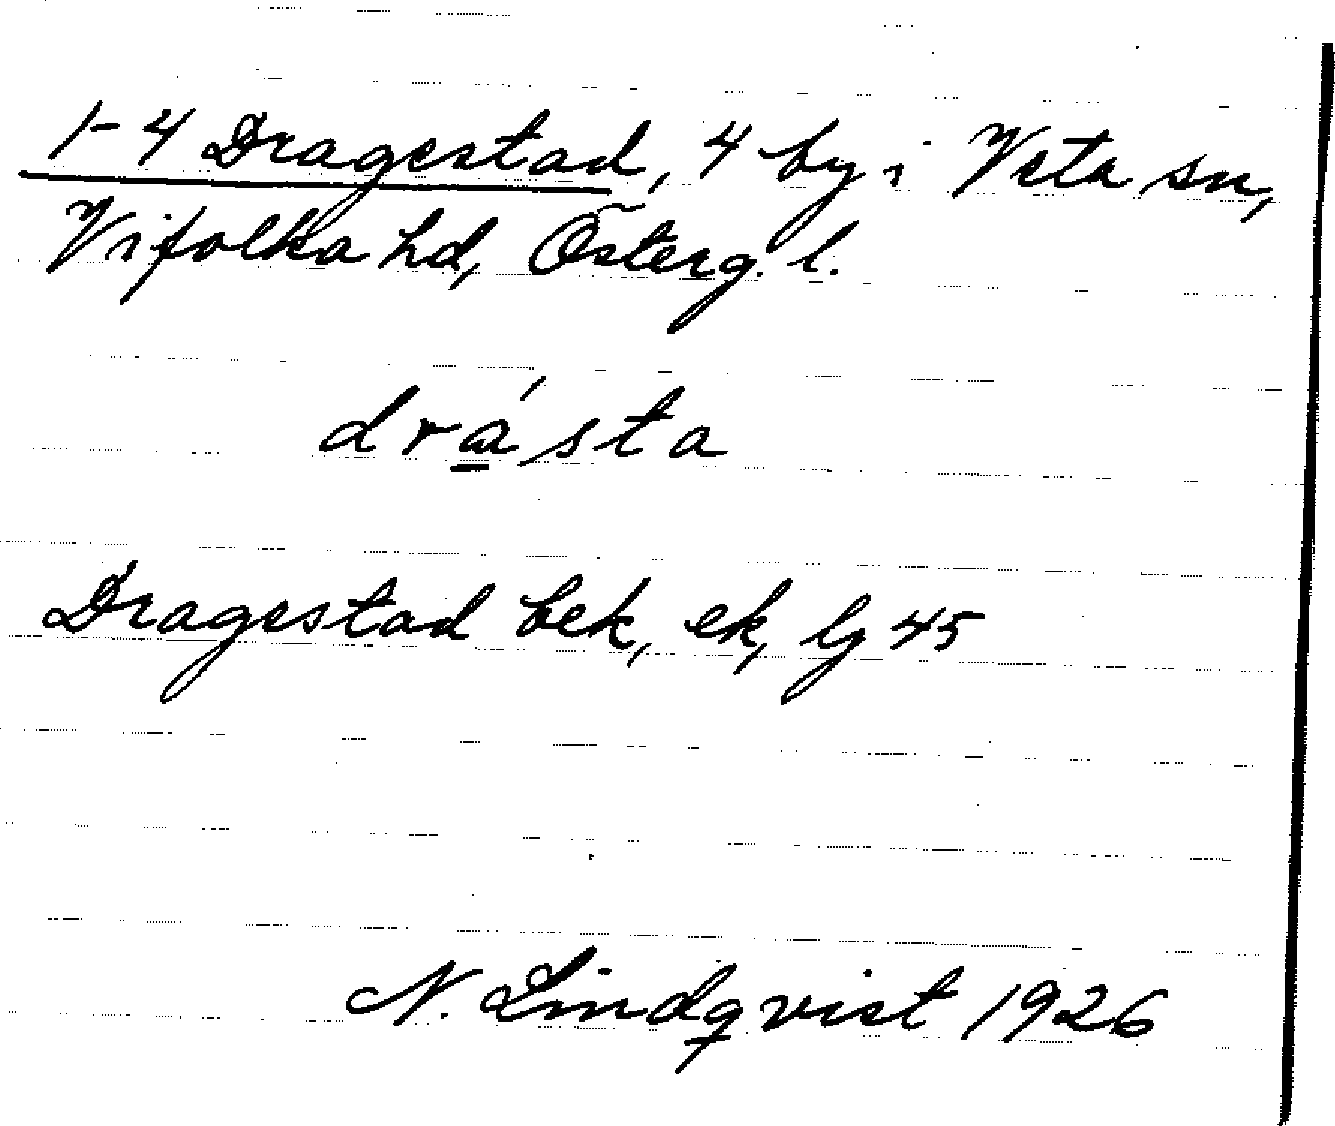 1-4 Dragestad, 4 by i Veta sn,
Vifolka hd, Österg. l.
drásta
Dragestad bek, ek, lj 45
N. Lindqvist 1926